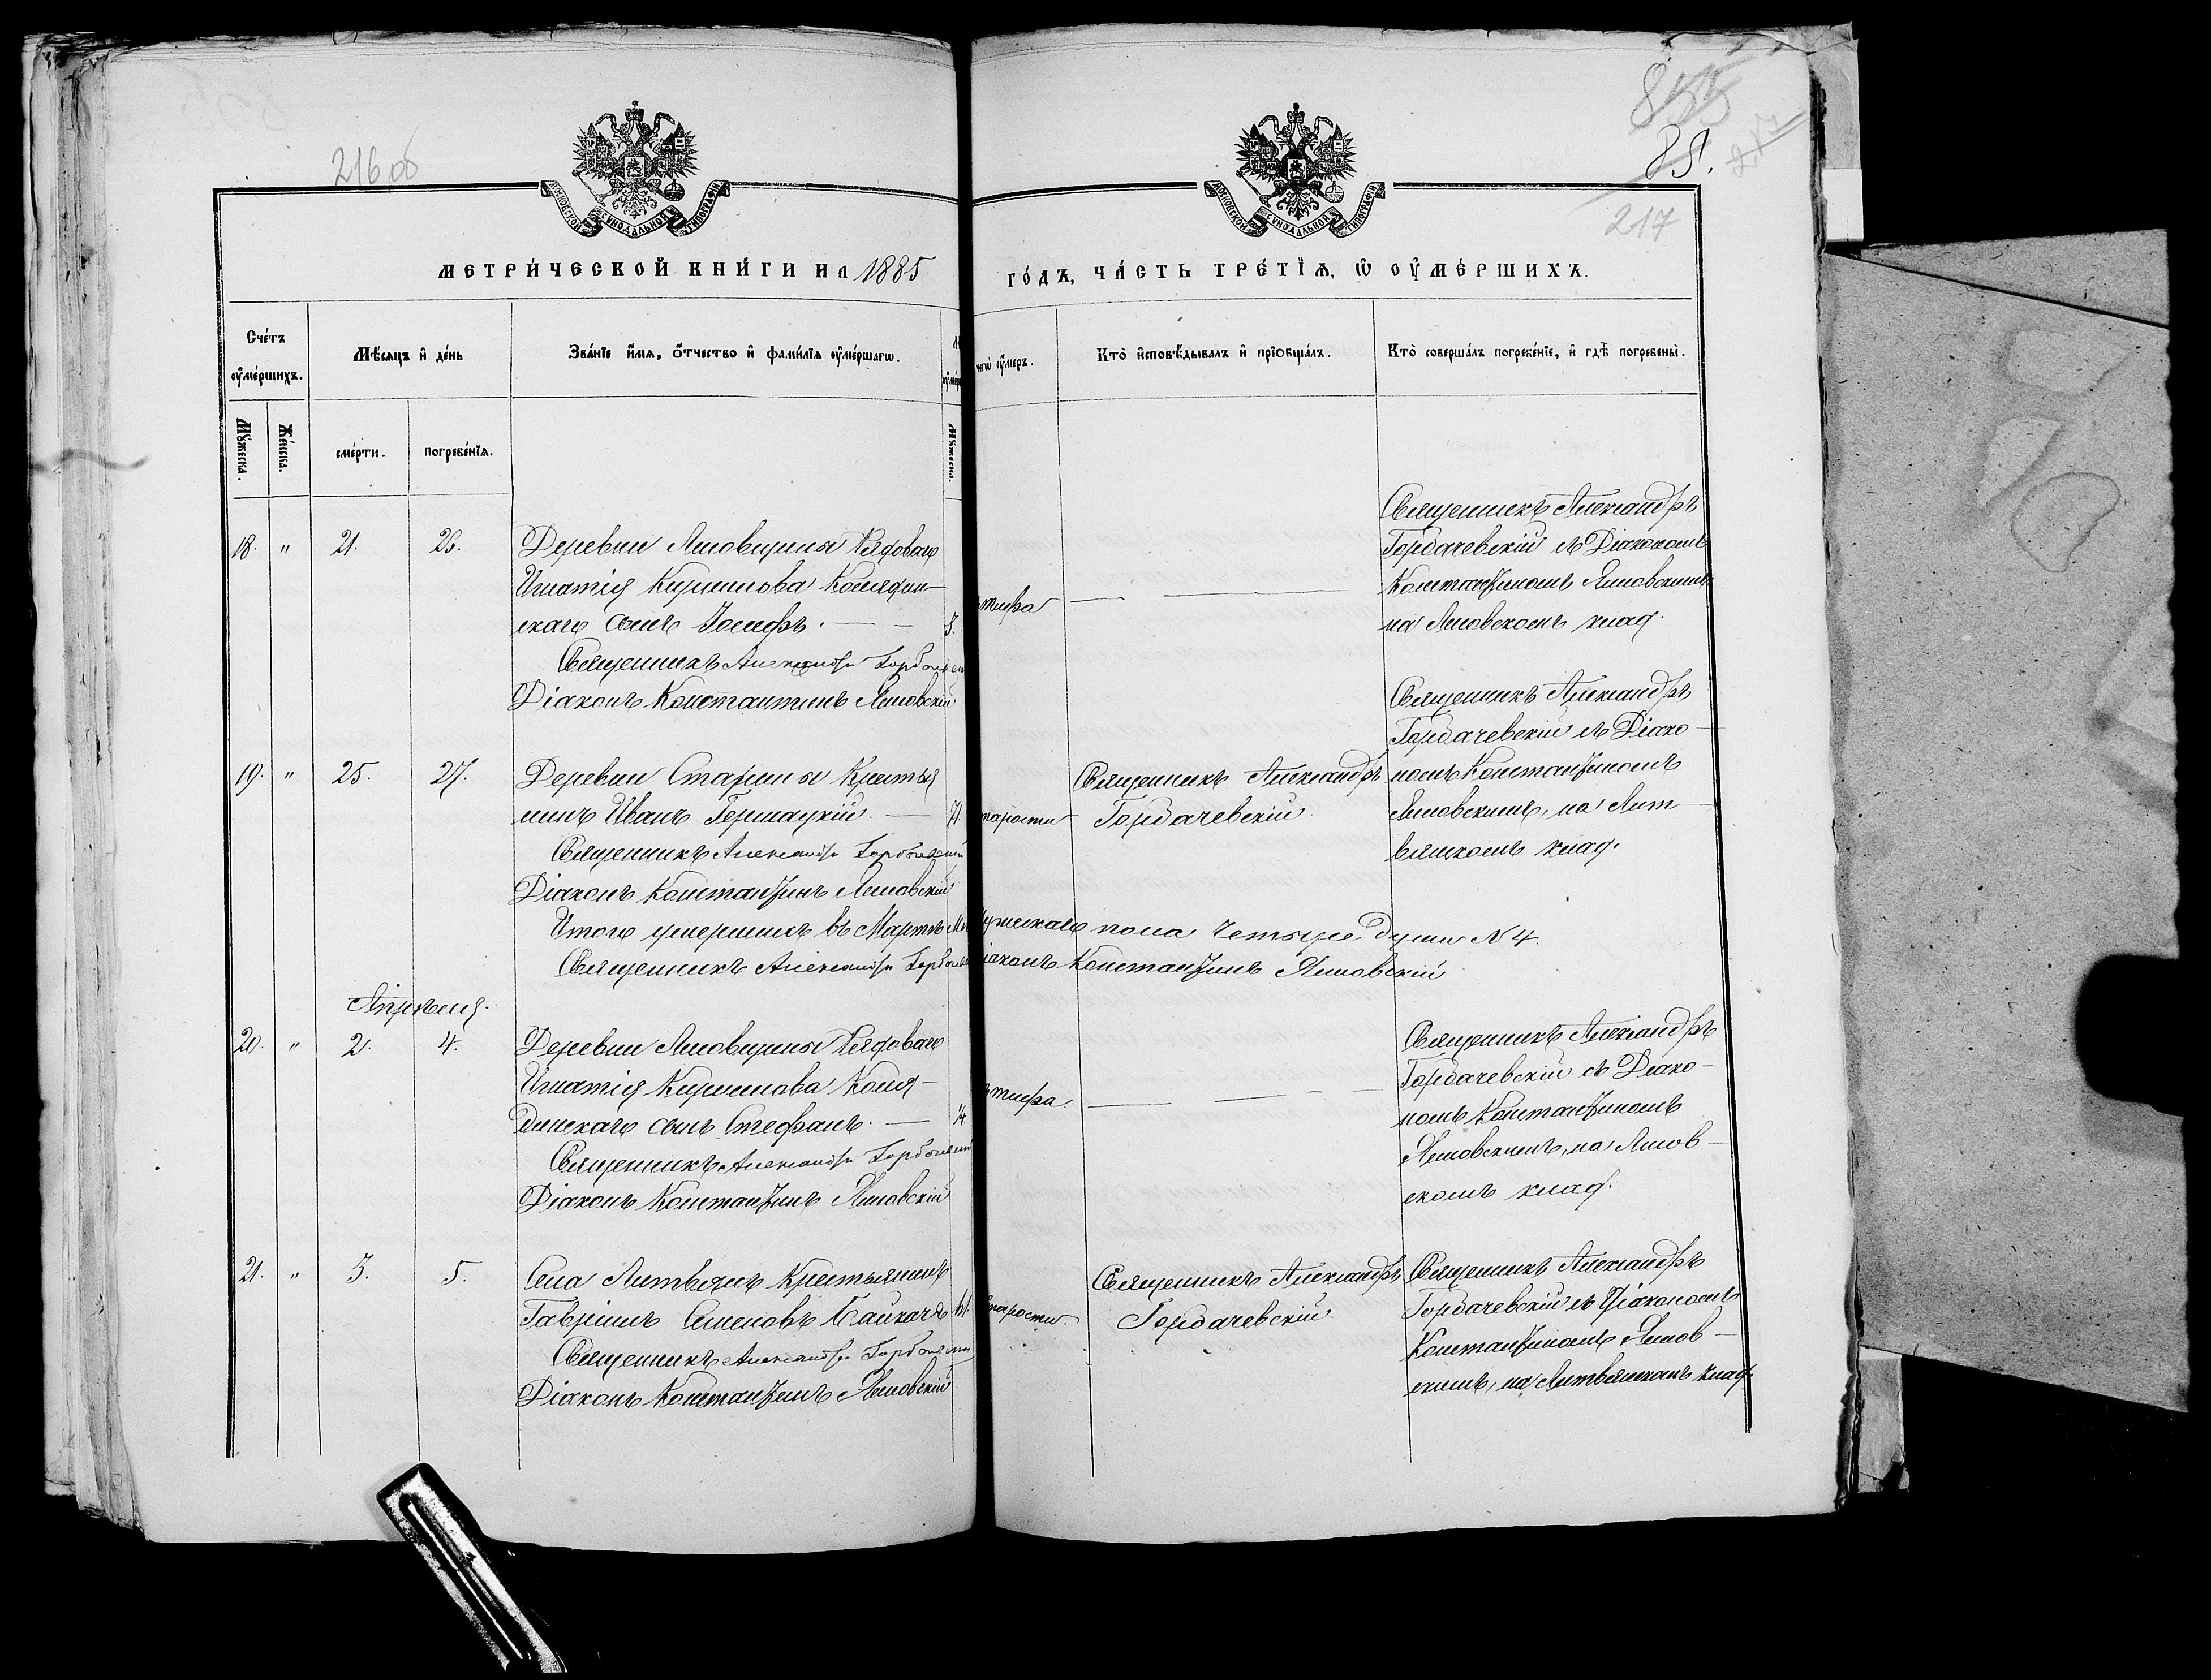 216 об
855
85.
217
217
МОСКОВСКОЙ СѴНОДАЛЬНОЙ ТИПОГРАФІИ
МОСКОВСКОЙ СѴНОДАЛЬНОЙ ТИПОГРАФІИ
МЕТРИ́ЧЕСКОЙ КНИ́ГИ НА 1885
ГО́ДЪ, ЧА́СТЬ ТРЕ́ТІѦ, Ѽ ОУ҆МЕ́РШИХЪ.
Сче́тъ
оу҆ме́ршихъ.
Мѣ́сяцъ и҆ де́нь
Зва́нїе и҆́мѧ, ѻ҆́тчество и҆ фами́лїѧ оу҆ме́ршагѡ.
чегѡ̀ оу҆́меръ.
Кто̀ и҆сповѣ́дывалъ и҆ прїѻбща́лъ.
Кто̀ соверша́лъ погребе́нїе, и҆ гдѣ̀ погребены̀.
Мꙋ́жеска.
Же́нска.
сме́рти.
погребе́нїѧ.
Мꙋ́жеска.
18. " 21. 26.
Деревни Яновщины Рядоваго
Игнатія Кириллова Колядин-
скаго сынъ Іосифъ. 3.
Священникъ Александръ Горбачев
Діаконъ Константинъ Яновскій
тифа
Священникъ Александръ
Горбачевскій съ Діакономъ
Константиномъ Яновскимъ
на Яновскомъ клад.
19. " 25. 27.
Деревни Старины Крестья
нинъ Иванъ
Священникъ Александръ Горбачевскій
Діаконъ Константинъ Яновскій
тарости
Священникъ Александръ
Горбачевскій
Священникъ Александръ
Горбачевскій съ Діако-
номъ Константиномъ
Яновскимъ, на Лит-
вянскомъ клад.
Итого умершихъ въ Мартѣ Мужескаго пола Четыре души N 4.
Священникъ Александръ Горбачев Діаконъ Константинъ Яновскій
Апрѣля.
20. " 2. 4.
Деревни Яновщины Рядоваго
Игнатія Кириллова Коля-
динскаго сынъ Стефанъ.
Священникъ Александръ Горбачевскій
Діаконъ Константинъ Яновскій
тифа.
Священникъ Александръ
Горбачевскій съ Діако-
номъ Константиномъ
Яновскимъ, на Янов-
скомъ клад.
21. " 3. 5.
Села Литвянъ Крестьянинъ
Гавріилъ Семеновъ Байкачъ 61.
Священникъ Александръ Горбачевскій
Діаконъ Константинъ Яновскій
старости
Священникъ Александръ
Горбачевскій
Священникъ Александръ
Горбачевскій съ Діакономъ
Константиномъ Янов-
скимъ, на Литвянскомъ клад.